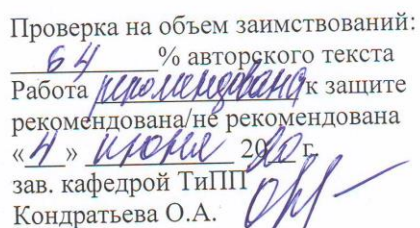 Проверка на объем заимствований:
64 % авторского текста
Работа рекомендована к защите
рекомендована/не рекомендована
«4» июня 2020 г.
зав. кафедрой ТиПП
Кондратьева О.А.